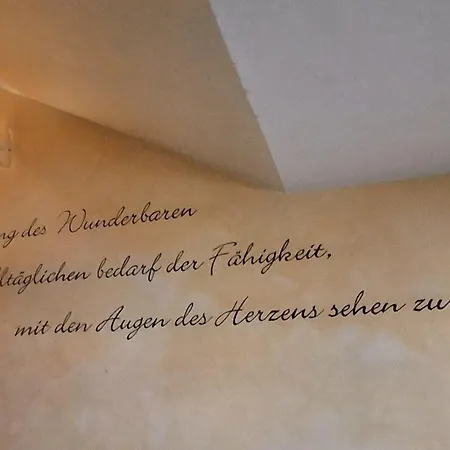 ng des Wunderbaren
ltäglichen bedarf der Fähigkeit,
mit den Augen des Herzens sehen zu